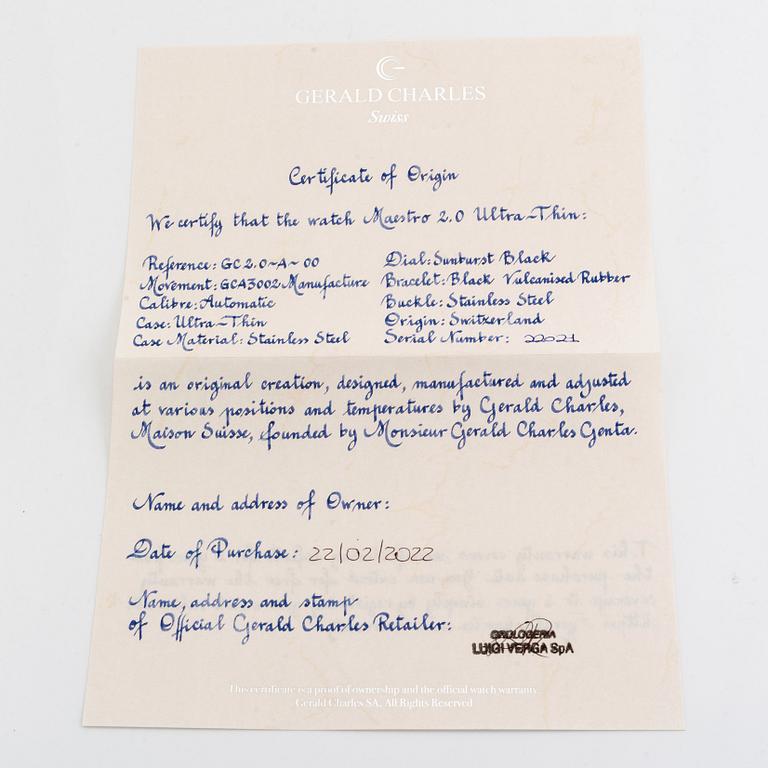 GERALD CHARLES
Swiss
Certificate of Origin
We certify that the watch Maestro 2.0 Ultra-Thin:
Reference: GC2.0-A-00
Movement: GCA3002 Manufacture
Calibre: Automatic
Case: Ultra-Thin
Case Material: Stainless Steel
Dial: Sunburst Black
Bracelet: Black Vulcanised Rubber
Buckle: Stainless Steel
Origin: Switzerland
Serial Number: 22021
is an original creation, designed, manufactured and adjusted
at various positions and temperatures by Gerald Charles,
Maison Suisse, founded by Monsieur Gerald Charles Genta.
Name and address of Owner:
Date of Purchase: 22/02/2022
Name, address and stamp
of Official Gerald Charles Retailer:
OROLOGERIA
LUIGI VERGA SpA
This certificate is a proof of ownership and the official watch warranty
Gerald Charles SA, All Rights Reserved